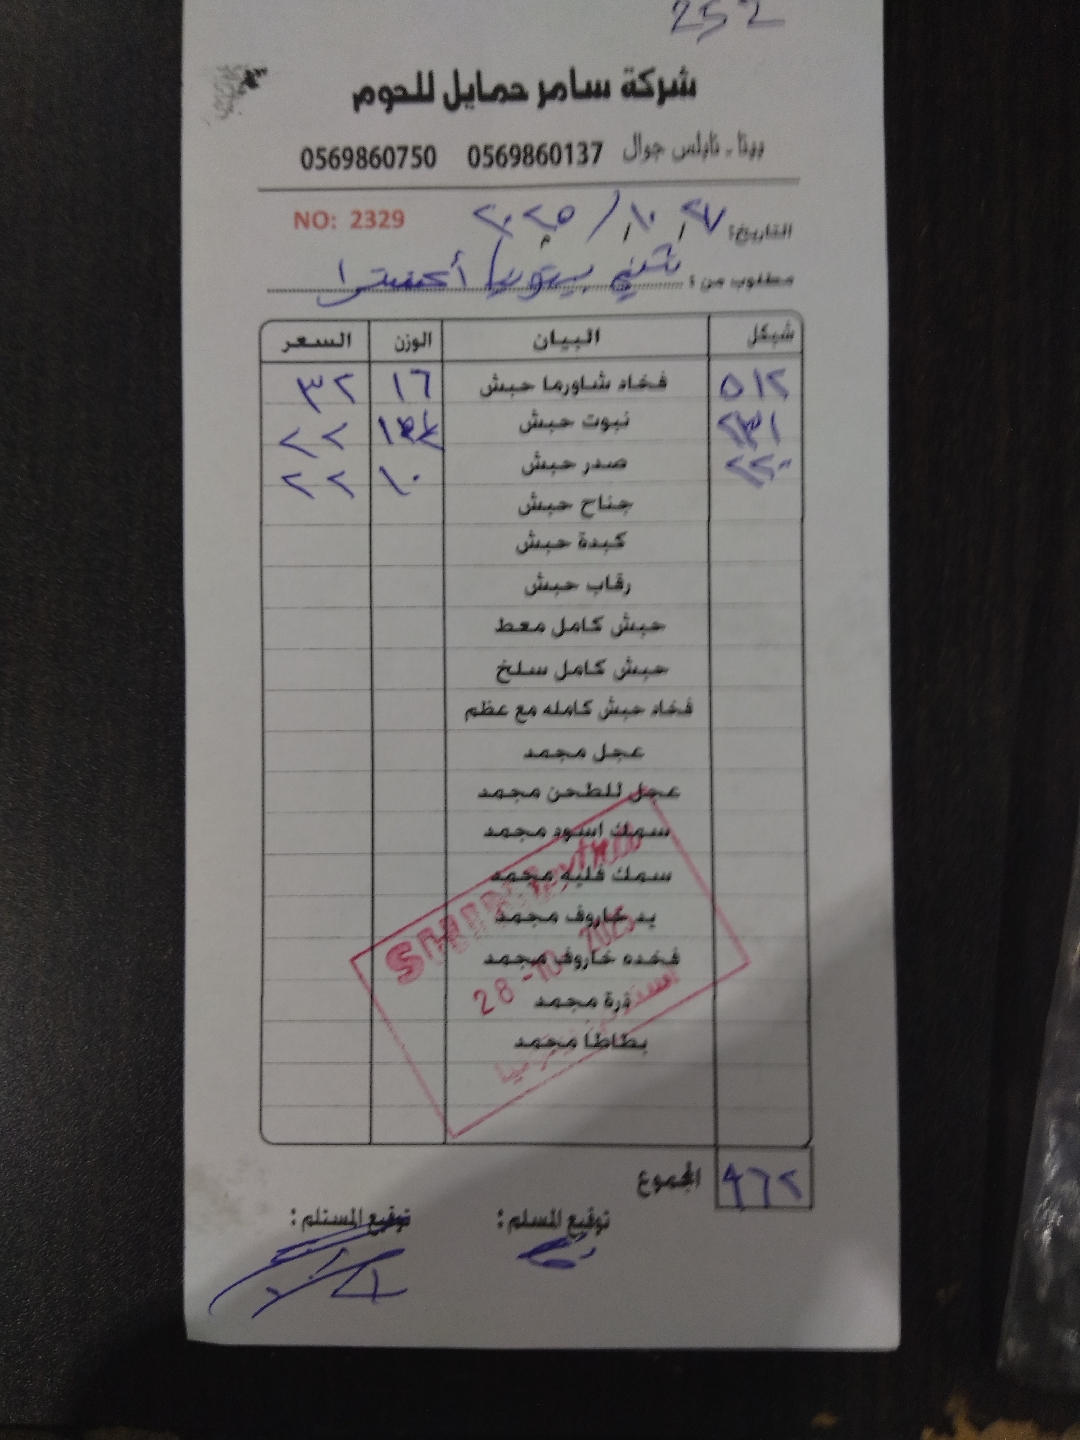 252
شركة سامر حمايل للحوم
بيتا - نابلس جوال 0569860137 0569860750
NO: 2329
التاريخ: ٢٧ / ١٠ / ٢٠٢٥
مطلوب من: شني بيتونيا أكسترا
شيكل البيان الوزن السعر
٥١٢ فخاد شاورما حبش ١٦ ٣٢
٢٣١ نبوت حبش ٢٢
٢٢٠ صدر حبش ١٠ ٢٢
جناح حبش
كبدة حبش
رقاب حبش
حبش كامل معط
حبش كامل سلخ
فخاد حبش كامله مع عظم
عجل مجمد
عجل للطحن مجمد
سمك اسود مجمد
سمك فليه مجمد
يد خاروف مجمد
فخده خاروف مجمد
ذرة مجمد
بطاطا مجمد
28-10-2025
المجموع ٩٦٢
توقيع المسلم: توقيع المستلم: